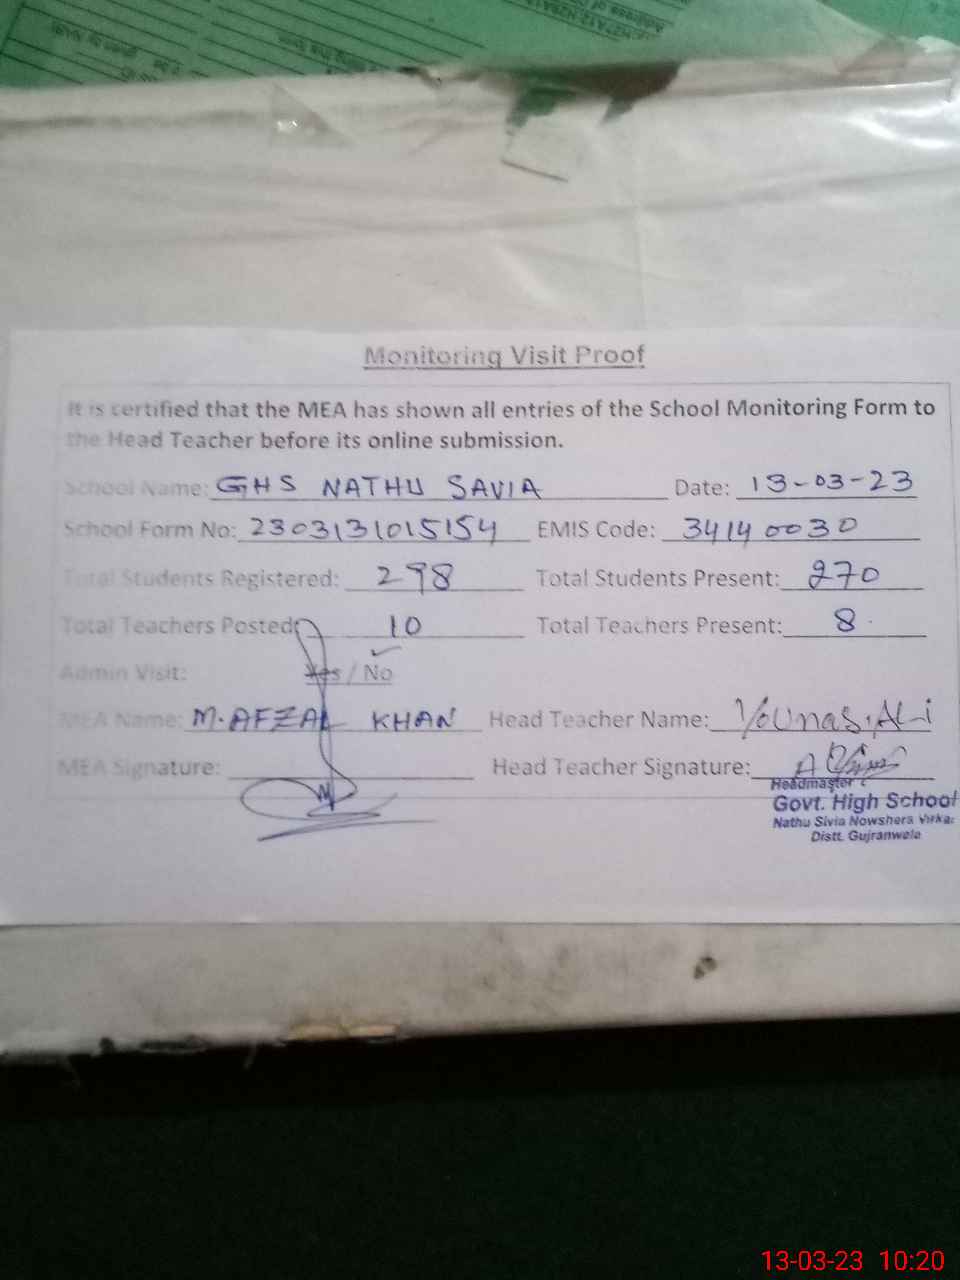 Monitoring Visit Proof
It is certified that the MEA has shown all entries of the School Monitoring Form to
the Head Teacher before its online submission.
School Name: GHS NATHU SAVIA Date: 13-03-23
School Form No: 2303131015154 EMIS Code: 34140030
Total Students Registered: 298 Total Students Present: 270
Total Teachers Posted: 10 Total Teachers Present: 8
Admin Visit: Yes / No
MEA Name: M. AFZAL KHAN Head Teacher Name: Younas Ali
MEA Signature: Head Teacher Signature:
Headmaster
Govt. High School
Nathu Sivia Nowshera Virkan
Distt. Gujranwala
13-03-23 10:20